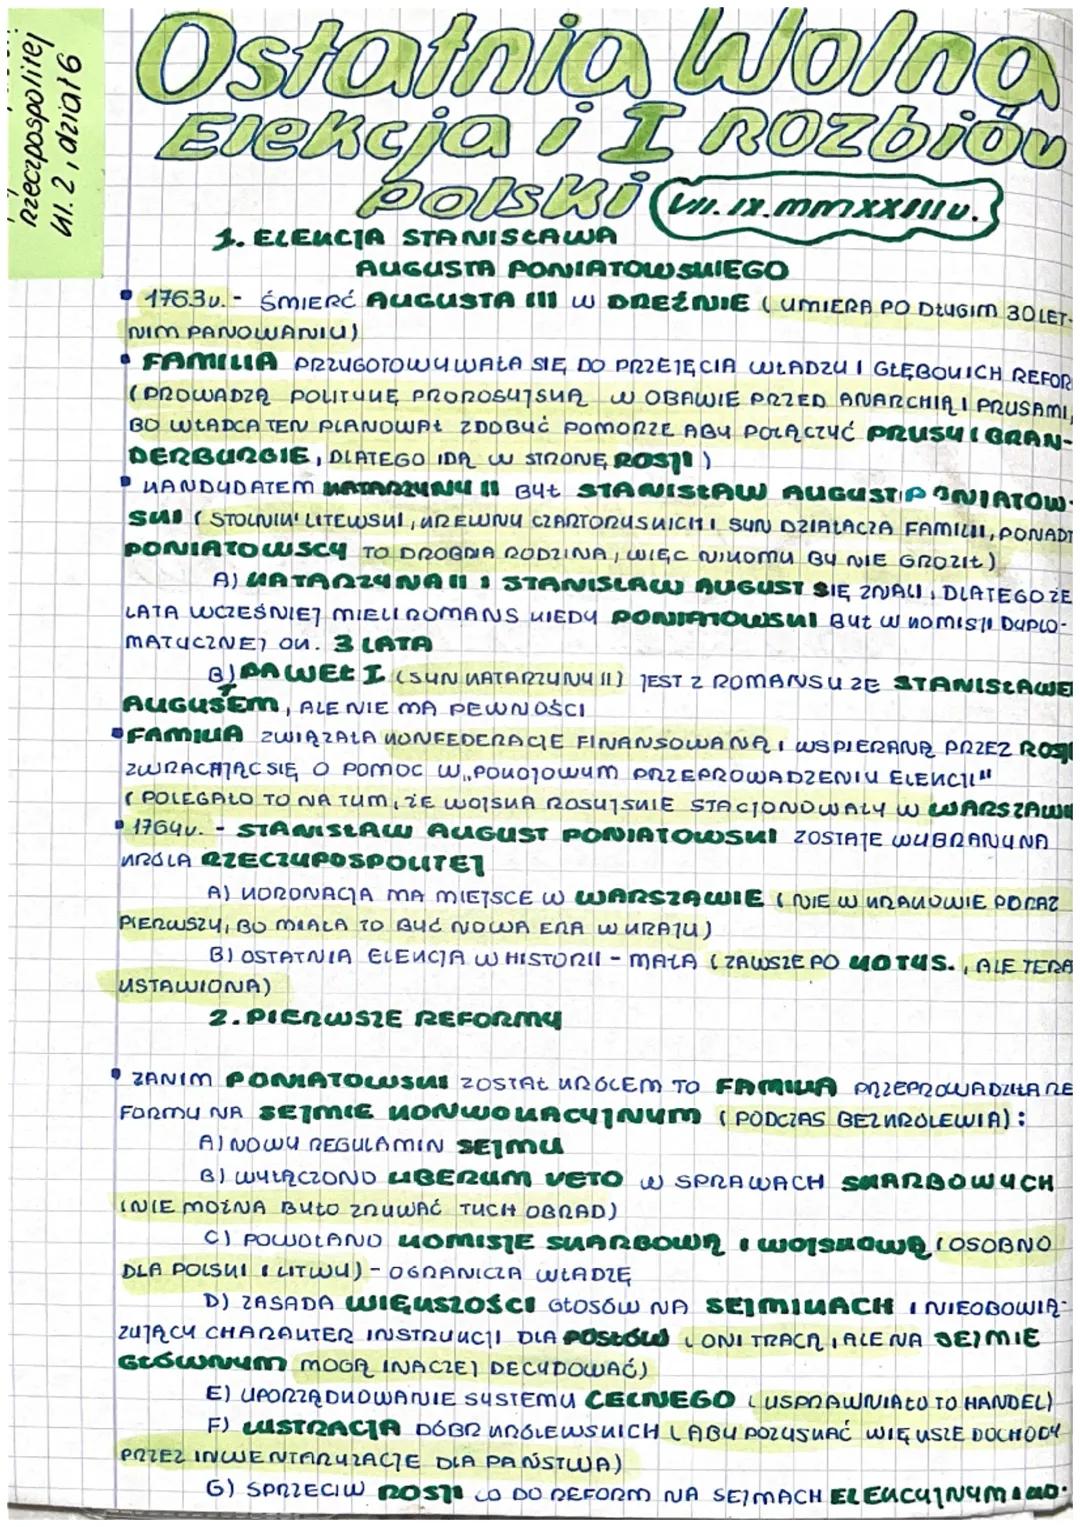 rzeczpospolitej
kl. 2, dział 6
Ostatnia Wolna
Elekcja i I Rozbiór
Polski
VII. IX. MMXXIII r.
1. ELEKCJA STANISŁAWA
AUGUSTA PONIATOWSKIEGO
• 1763r. - ŚMIERĆ AUGUSTA III W DREŹNIE (UMIERA PO DŁUGIM 30 LET-
NIM PANOWANIU)
• FAMILIA PRZYGOTOWYWAŁA SIĘ DO PRZEJĘCIA WŁADZY I GŁĘBOKICH REFOR
(PROWADZĄ POLITYKĘ PROROSYJSKĄ W OBAWIE PRZED ANARCHIĄ I PRUSAMI,
BO WŁADCA TEN PLANOWAŁ ZDOBYĆ POMORZE ABY POŁĄCZYĆ PRUSY I BRAN-
DERBURGIE, DLATEGO IDĄ W STRONĘ ROSJI)
• KANDYDATEM KATARZYNY II BYŁ STANISŁAW AUGUST PONIATOW-
SKI (STOLNIK LITEWSKI, KREWNY CZARTORYSKICH I SYN DZIAŁACZA FAMILII, PONADT
PONIATOWSCY TO DROBNA RODZINA, WIĘC NIKOMU BY NIE GROZIŁ)
A) KATARZYNA II I STANISLAW AUGUST SIĘ ZNALI, DLATEGO ŻE
LATA WCZEŚNIEJ MIELI ROMANS KIEDY PONIATOWSKI BYŁ W KOMISJI DYPLO-
MATYCZNEJ OK. 3 LATA
B) PAWEŁ I (SYN KATARZYNY II) JEST Z ROMANSU ZE STANISŁAWE
AUGUSTEM, ALE NIE MA PEWNOŚCI
• FAMILIA ZWIĄZAŁA KONFEDERACJE FINANSOWANĄ I WSPIERANĄ PRZEZ ROSJ
ZWRACAJĄC SIĘ O POMOC W „POKOJOWYM PRZEPROWADZENIU ELEKCJI"
(POLEGAŁO TO NA TYM, ŻE WOJSKA ROSYJSKIE STACJONOWAŁY W WARSZAWI
• 1764r. - STANISŁAW AUGUST PONIATOWSKI ZOSTAJE WYBRANY NA
KRÓLA RZECZYPOSPOLITEJ
A) KORONACJA MA MIEJSCE W WARSZAWIE (NIE W KRAKOWIE PO RAZ
PIERWSZY, BO MIAŁA TO BYĆ NOWA ERA W KRAJU)
B) OSTATNIA ELEKCJA W HISTORII - MAŁA (ZAWSZE PO 40 TYS., ALE TERA
USTAWIONA)
2. PIERWSZE REFORMY
• ZANIM PONIATOWSKI ZOSTAŁ KRÓLEM TO FAMILIA PRZEPROWADZIŁA RE
FORMY NA SEJMIE KONWOKACYJNYM (PODCZAS BEZKRÓLEWIA):
A) NOWY REGULAMIN SEJMU
B) WYŁĄCZONO LIBERUM VETO W SPRAWACH SKARBOWYCH
(NIE MOŻNA BYŁO ZRYWAĆ TYCH OBRAD)
C) POWOŁANO KOMISJE SKARBOWĄ I WOJSKOWĄ (OSOBNO
DLA POLSKI I LITWY) - OGRANICZA WŁADZĘ
D) ZASADA WIĘKSZOŚCI GŁOSÓW NA SEJMIKACH I NIEOBOWIĄ-
ZUJĄCY CHARAKTER INSTRUKCJI DLA POSŁÓW (ONI TRACĄ, ALE NA SEJMIE
GŁÓWNYM MOGĄ INACZEJ DECYDOWAĆ)
E) UPORZĄDKOWANIE SYSTEMU CELNEGO (USPRAWNIAŁO TO HANDEL)
F) LUSTRACJA DÓBR KRÓLEWSKICH (ABY POZYSKAĆ WIĘKSZE DOCHODY
PRZEZ INWENTARYZACJE DLA PAŃSTWA)
G) SPRZECIW ROSJI CO DO REFORM NA SEJMACH ELEKCYJNYM I KO-